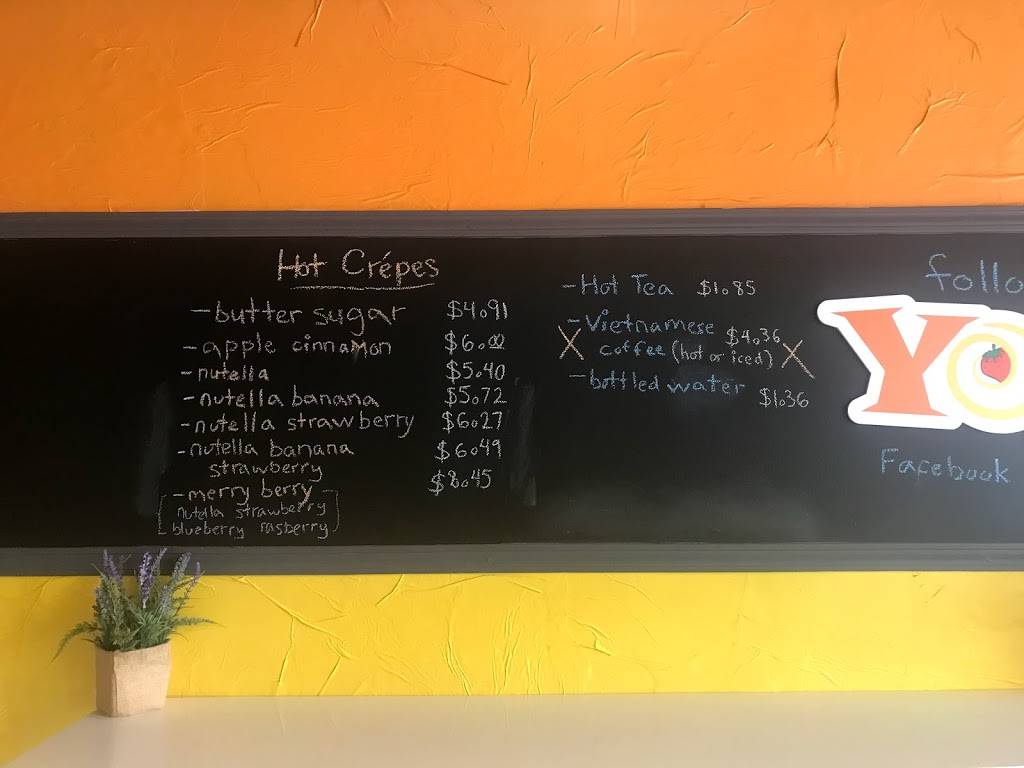 Hot Crépes
- butter sugar $4.91
- apple cinnamon $6.00
- nutella $5.40
- nutella banana $5.72
- nutella strawberry $6.27
- nutella banana $6.49
strawberry
- merry berry $8.45
[nutella strawberry
blueberry rasberry]
- Hot Tea $1.85
- Vietnamese $4.36
X coffee (hot or iced) X
- bottled water $1.36
follo
YO
Facebook